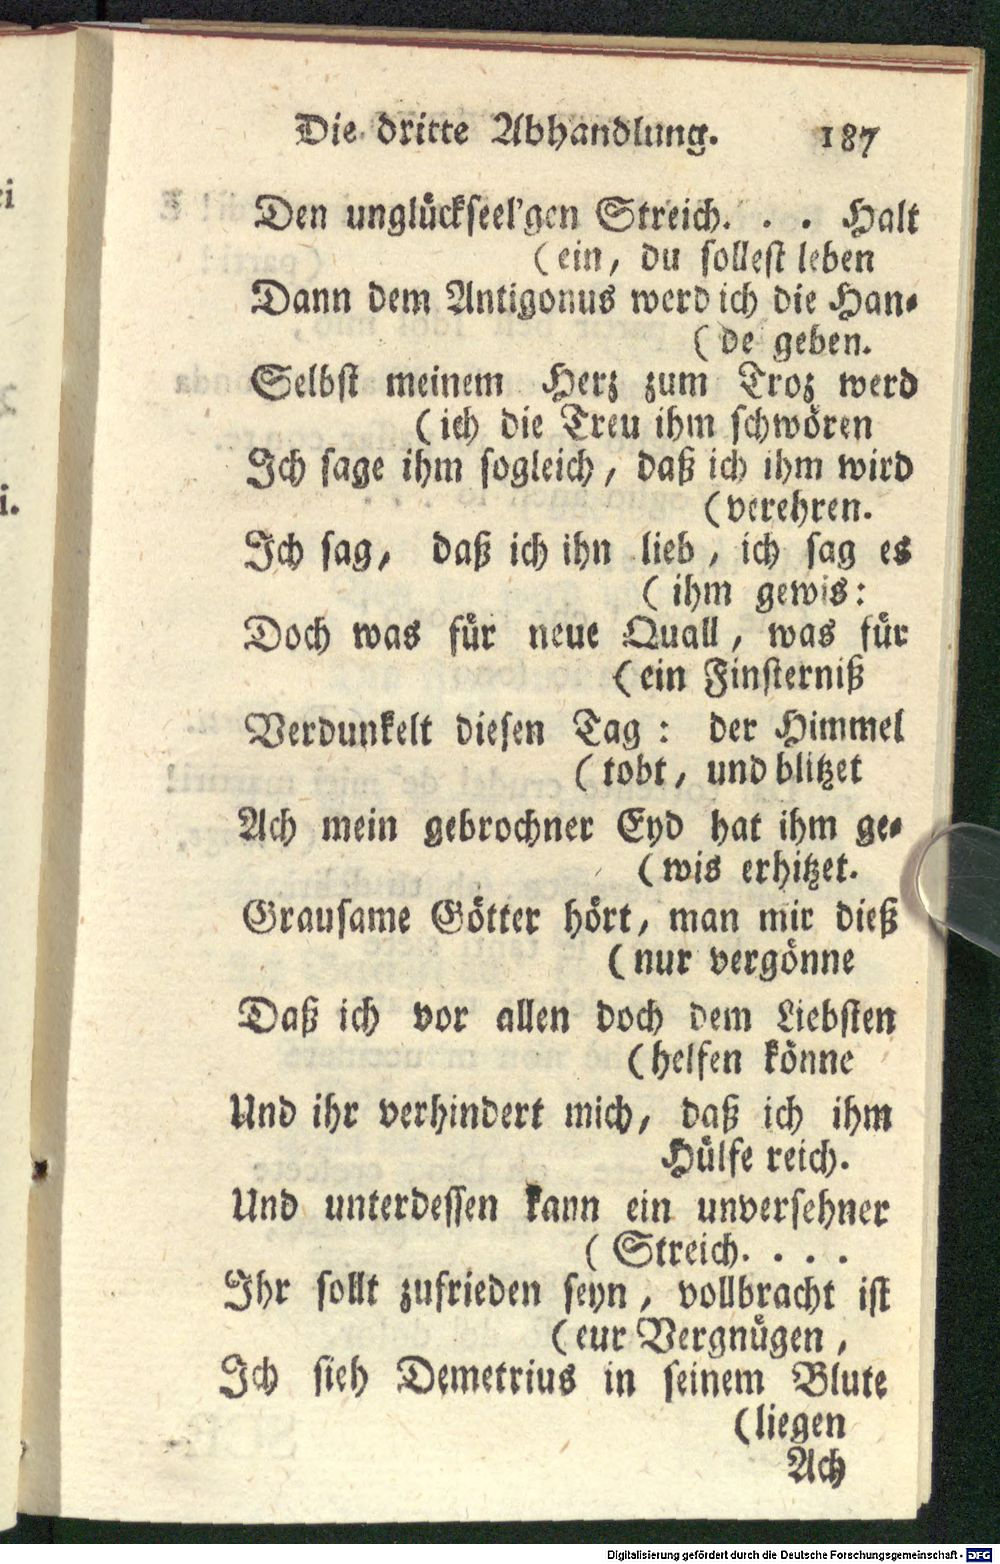 ti
i.
Die dritte Abhandlung. 187
Den unglückseel'gen Streich. . . Halt
(ein, du sollest leben
Dann dem Antigonus werd ich die Han-
(de geben.
Selbst meinem Herz zum Troz werd
(ich die Treu ihm schwören
Ich sage ihm sogleich, daß ich ihm wird
(verehren.
Ich sag, daß ich ihn lieb, ich sag es
(ihm gewis:
Doch was für neue Quall, was für
(ein Finsterniß
Verdunkelt diesen Tag: der Himmel
(tobt, und blitzet
Ach mein gebrochner Eyd hat ihm ge-
(wis erhitzet.
Grausame Götter hört, man mir dieß
(nur vergönne
Daß ich vor allen doch dem Liebsten
(helfen könne
Und ihr verhindert mich, daß ich ihm
Hülfe reich.
Und unterdessen kann ein unversehner
(Streich. . . .
Ihr sollt zufrieden seyn, vollbracht ist
(eur Vergnügen,
Ich sieh Demetrius in seinem Blute
(liegen
Ach
Digitalisierung gefördert durch die Deutsche Forschungsgemeinschaft - DFG